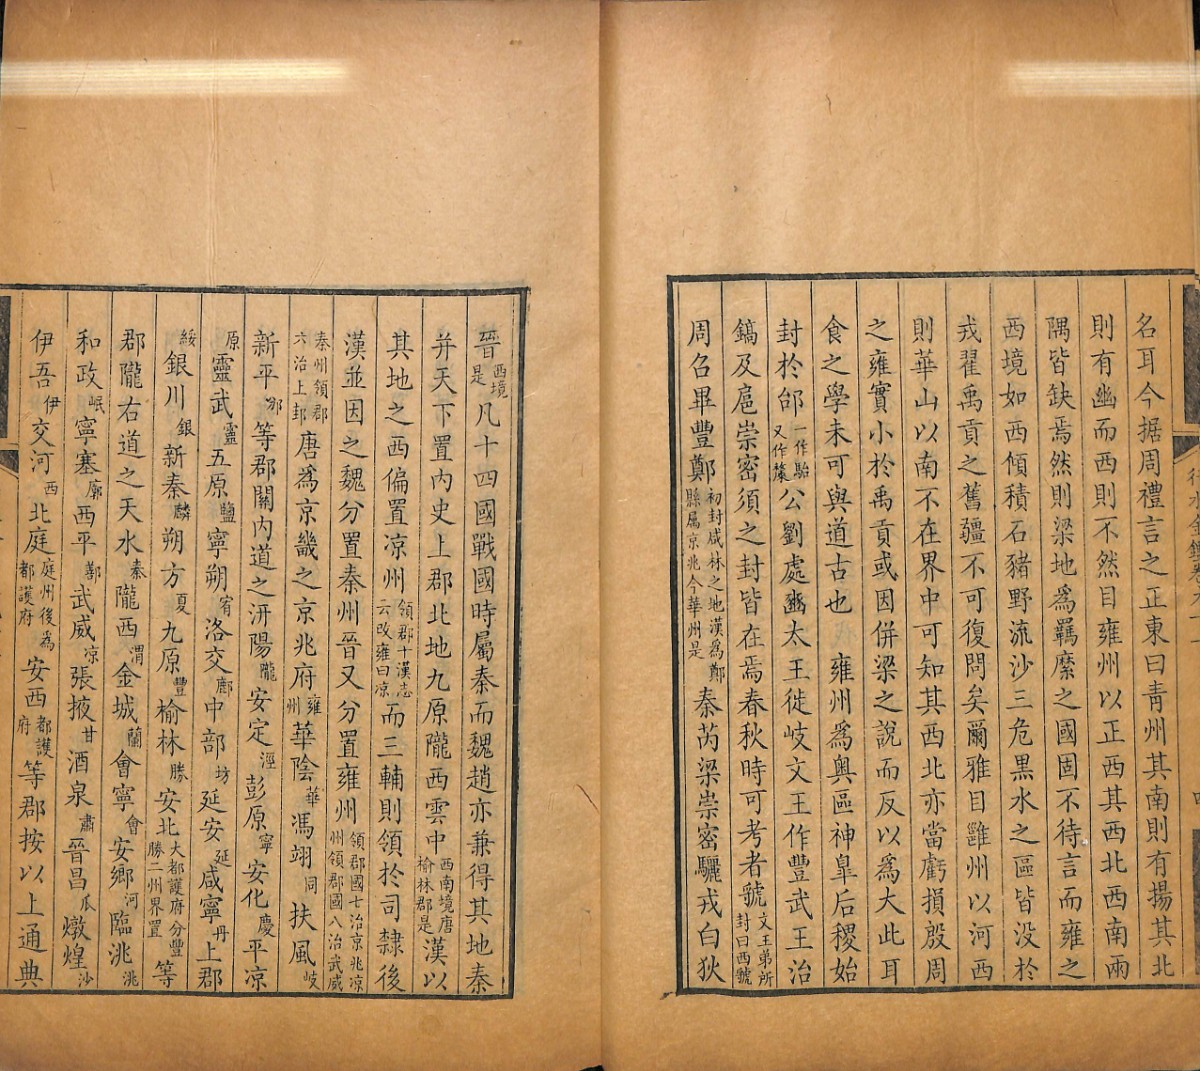 名耳今据周禮言之正東曰青州其南則有揚其北
則有幽而西則不然目雍州以正西其西北西南兩
隅皆缺焉然則梁地爲羈縻之國固不待言而雍之
西境如西傾積石豬野流沙三危黒水之區皆没於
戎翟禹貢之舊疆不可復問矣爾雅目雝州以河西
則華山以南不在界中可知其西北亦當虧損殷周
之雍實小於禹貢或因併梁之說而反以爲大此耳
食之學未可與道古也　雍州爲奥區神臯后稷始
封於邰一作駘又作斄公劉處豳太王徙岐文王作豐武王治
鎬及扈崇密須之封皆在焉春秋時可考者虢文王弟所封曰西虢
周召畢豐鄭初封咸林之地漢爲鄭縣屬京兆今華州是秦芮梁崇密驪戎白狄
晉西境是凡十四國戰國時屬秦而魏趙亦兼得其地秦
并天下置内史上郡北地九原隴西雲中西南境唐榆林郡是漢以
其地之西偏置涼州領郡十漢志云改雍曰涼而三輔則領於司隸後
漢並因之魏分置秦州晉又分置雍州領郡國七治京兆涼州領郡國八治武威
秦州領郡六治上邽唐爲京畿之京兆府雍州華陰華馮翊同扶風岐
新平邠等郡關内道之汧陽隴安定涇彭原寧安化慶平凉
原靈武靈五原鹽寧朔宥洛交鄜中部坊延安延咸寧丹上郡
綏銀川銀新秦麟朔方夏九原豐榆林勝安北大都護府分豐勝二州界置等
郡隴右道之天水秦隴西渭金城蘭會寧會安鄉河臨洮洮
和政岷寧塞廓西平鄯武威凉張掖甘酒泉肅晉昌瓜燉煌沙
伊吾伊交河西北庭庭州後爲都護府安西都護府等郡按以上通典